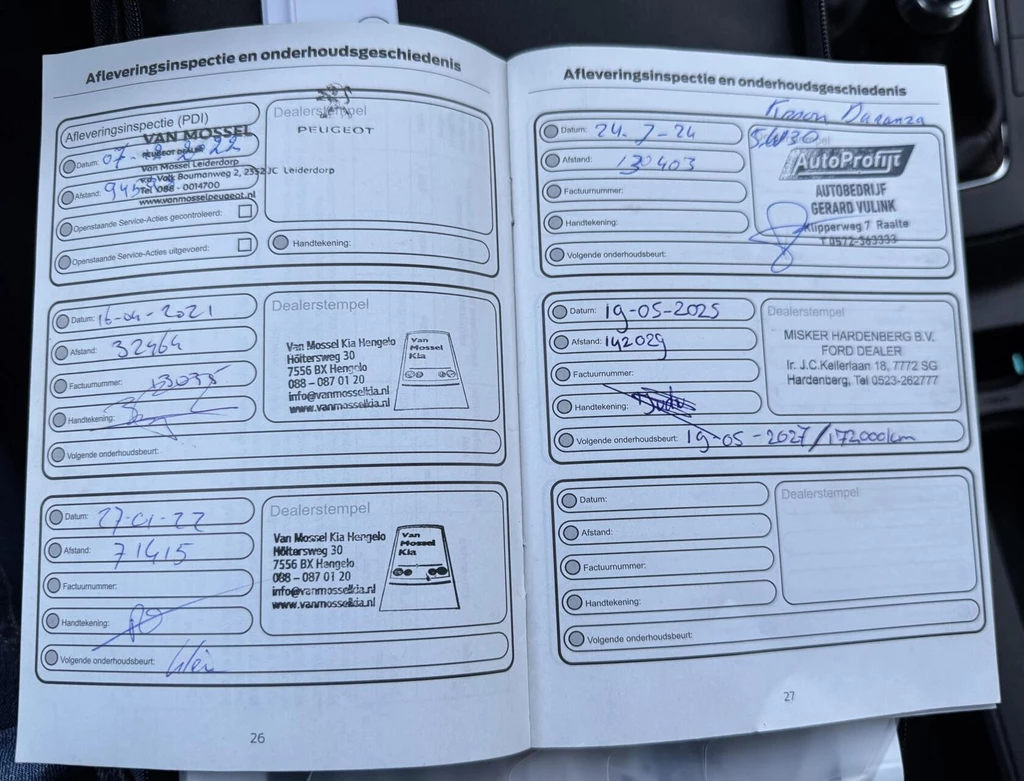 Afleveringsinspectie en onderhoudsgeschiedenis
Afleveringsinspectie (PDI)
Dealerstempel
PEUGEOT
VAN MOSSEL
PEUGEOT DEALER
Van Mossel Leiderdorp
v.d. Valk Boumanweg 2, 2352 JC Leiderdorp
Tel 088 - 0014700
www.vanmosselpeugeot.nl
Datum: 07-
Afstand:
Openstaande Service-Acties gecontroleerd:
Openstaande Service-Acties uitgevoerd:
Handtekening:
Datum: 16-04-2021
Afstand: 32464
Factuurnummer:
Handtekening:
Volgende onderhoudsbeurt:
Dealerstempel
Van Mossel Kia Hengelo
Höltersweg 30
7556 BX Hengelo
088 - 087 01 20
info@vanmosselkia.nl
www.vanmosselkia.nl
Van
Mossel
Kia
Datum: 27-01-22
Afstand: 71415
Factuurnummer:
Handtekening:
Volgende onderhoudsbeurt:
Dealerstempel
Van Mossel Kia Hengelo
Höltersweg 30
7556 BX Hengelo
088 - 087 01 20
info@vanmosselkia.nl
www.vanmosselkia.nl
Van
Mossel
Kia
26
Afleveringsinspectie en onderhoudsgeschiedenis
Datum: 24-7-24
Afstand: 130403
Factuurnummer:
Handtekening:
Volgende onderhoudsbeurt:
5W30
AutoProfijt
AUTOBEDRIJF
GERARD VULINK
Klipperweg 7 Raalte
T 0572-363333
Datum: 19-05-2025
Afstand: 142029
Factuurnummer:
Handtekening:
Volgende onderhoudsbeurt: 19-05-2027/172.000km
Dealerstempel
MISKER HARDENBERG B.V.
FORD DEALER
Ir. J.C.Kellerlaan 18, 7772 SG
Hardenberg, Tel 0523-262777
Datum:
Afstand:
Factuurnummer:
Handtekening:
Volgende onderhoudsbeurt:
Dealerstempel
27